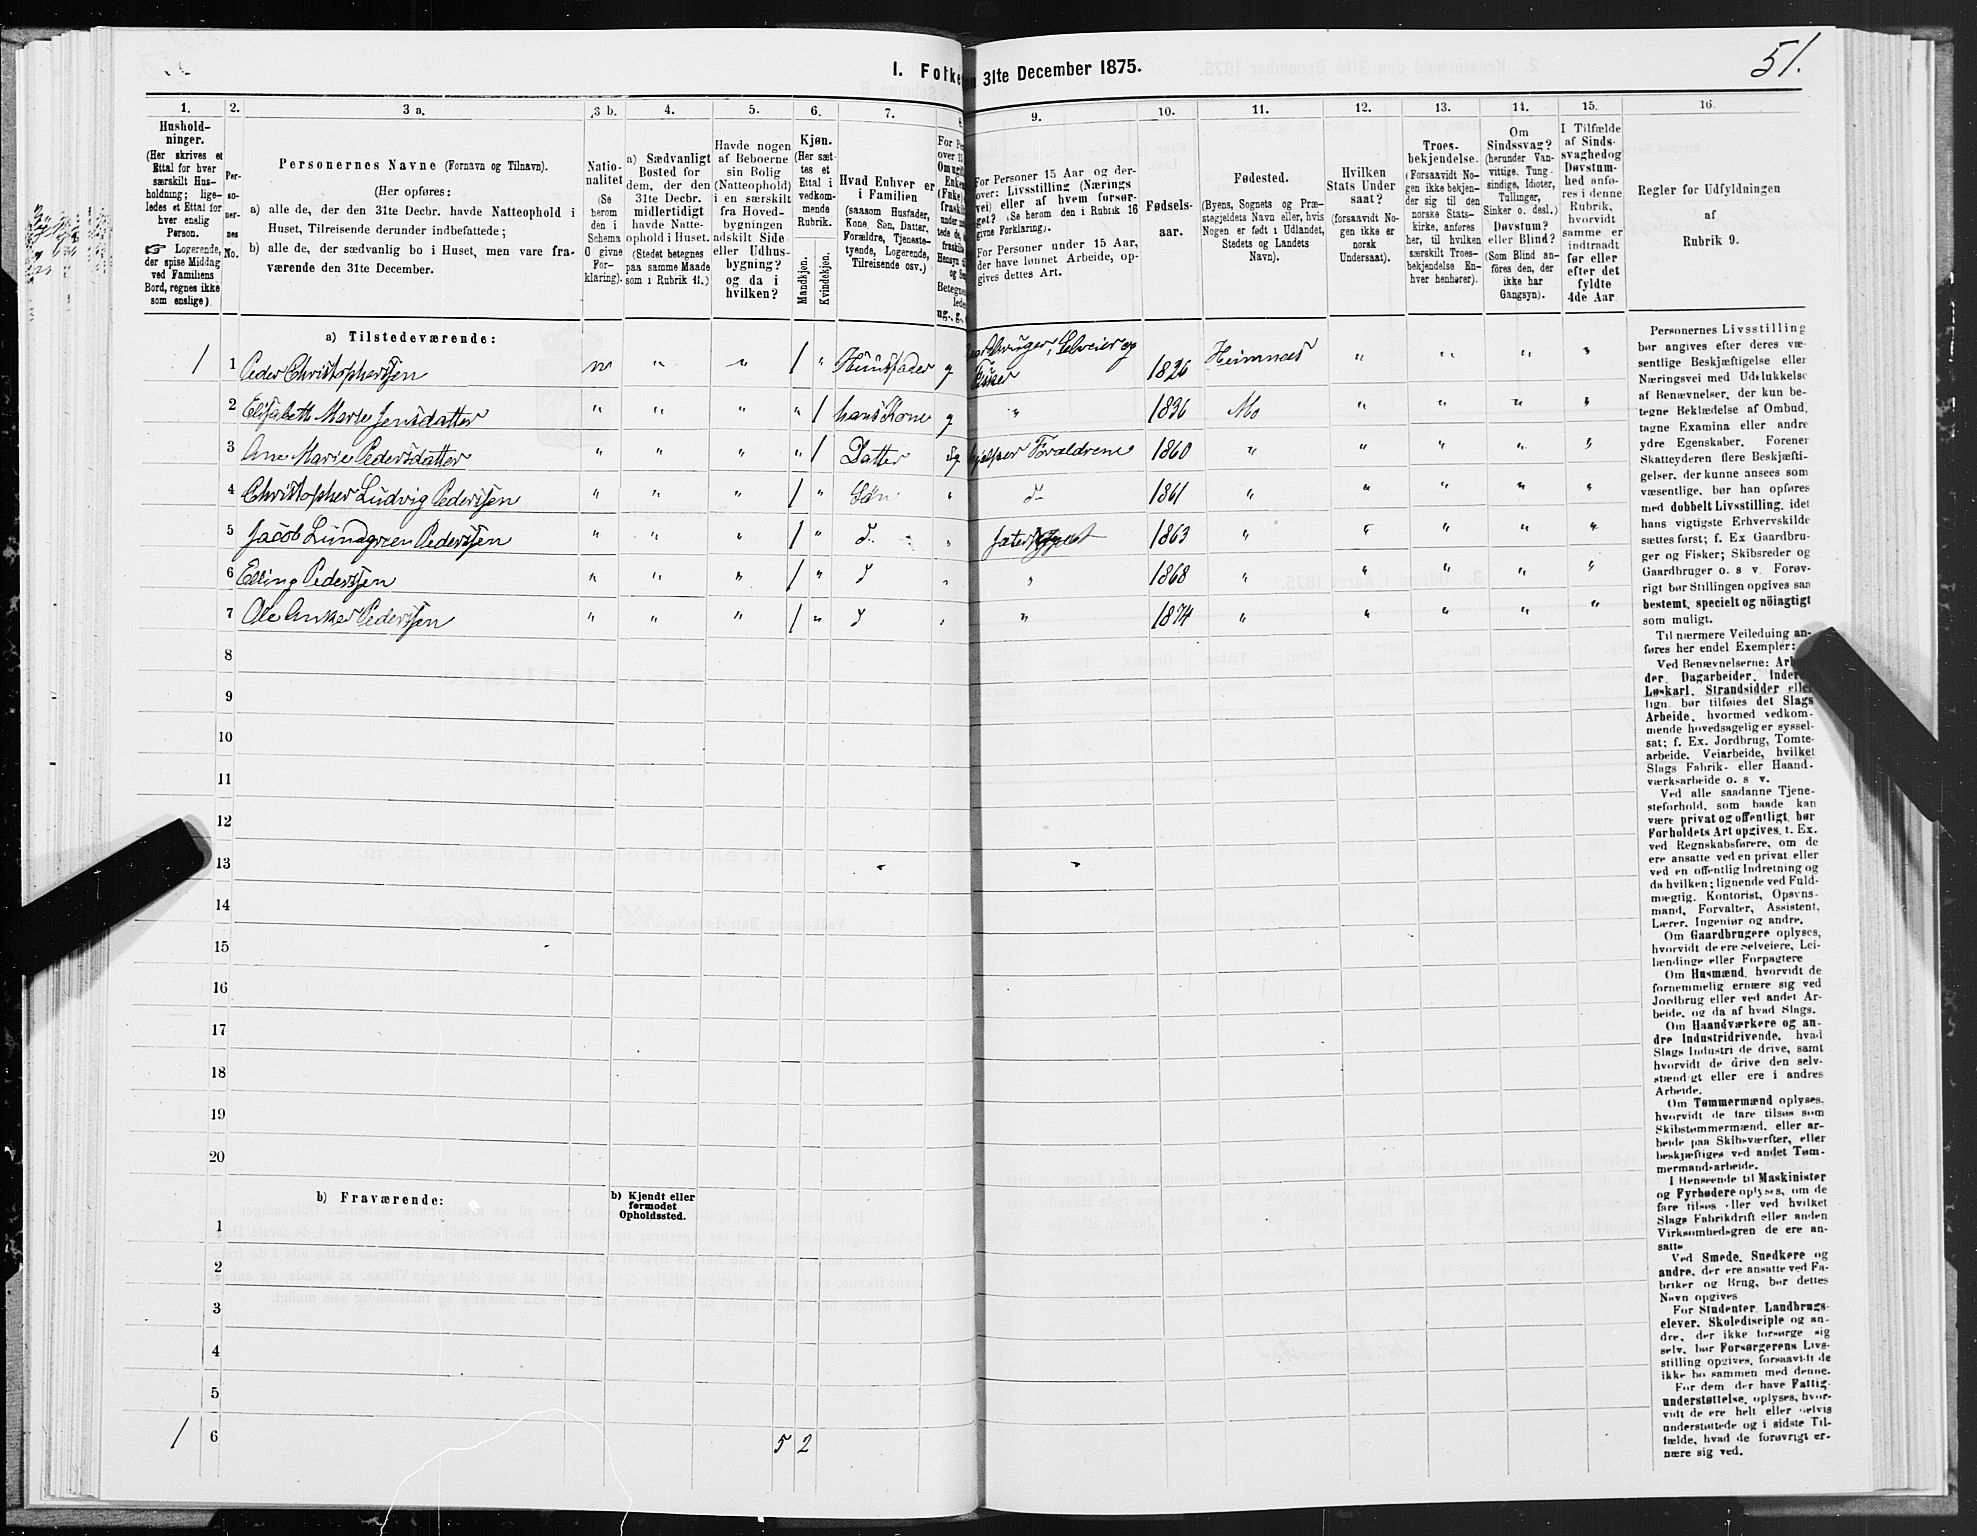 51.
1. Folke
m 31te December 1875.
1. 2. 3 a. 3 b. 4. 5. 6. 7. 8. 9. 10. 11. 12. 13. 14. 15. 16.
Hushold-
ninger.
(Her skrives et
Ettal for hver
særskilt Hus-
holdning; lige-
ledes et Ettal for
hver enslig
Person.
☞ Logerende,
der spise Middag
ved Familiens
Bord, regnes ikke
som enslige).
Per-
so-
ner-
nes
No.
Personernes Navne (Fornavn og Tilnavn).
(Her opføres:
a) alle de, der den 31te Decbr. havde Natteophold i
Huset, Tilreisende derunder indbefattede;
b) alle de, der sædvanlig bo i Huset, men vare fra-
værende den 31te December.
Natio-
nalitet
(Se
herom
den i
Schema
6 givne
For-
klaring).
a) Sædvanligt
Bosted for
dem, der den
31te Decbr.
midlertidigt
havde Natte-
ophold i Huset.
(Stedet betegnes
paa samme Maade
som i Rubrik 11.)
Havde nogen
af Beboerne
sin Bolig
(Natteophold)
i en særskilt
fra Hoved-
bygningen
adskilt Side
eller Udhus-
bygning?
og da i
hvilken?
Kjøn.
(Her sæt-
tes et
Ettal i
vedkom-
mende
Rubrik.
Mandkjøn.
Kvindekjøn.
Hvad Enhver er
i Familien
(saasom Husfader,
Kone, Søn, Datter,
Forældre, Tjeneste-
tyende, Logerende,
Tilreisende osv.)
For Personer 15 Aar og der-
over: Livsstilling (Nærings
vei) eller af hvem forsør-
get? (Se herom den i Rubrik 16
givne Forklaring).
For Personer under 15 Aar,
der have lønnet Arbeide, op-
gives dettes Art.
Fødsels-
aar.
Fødested.
(Byens, Sognets og Præ-
stegjeldets Navn eller, hvis
Nogen er født i Udlandet,
Stedets og Landets
Navn).
Hvilken
Stats Under
saat?
(forsaavidt No-
gen ikke er
norsk
Undersaat).
Troes-
bekjendelse.
(Forsaavidt No-
gen ikke bekjen-
der sig til den
norske Stats-
kirke, anføres
her, til hvilken
særskilt Troes-
bekjendelse En-
hver henhører).
Om
Sindssvag?
(herunder Van-
vittige, Tung-
sindige, Idioter,
Tullinger,
Sinker o. desl.)
Døvstum?
eller Blind?
(Som Blind an-
føres den, der
ikke har
Gangsyn).
I Tilfælde
af Sinds-
svaghedog
Døvstum-
hed anfø-
res i denne
Rubrik,
hvorvidt
samme er
indtraadt
før eller
efter det
fyldte
4de Aar
Regler for Udfyldningen
af
Rubrik 9.
a) Tilstedeværende:
1 1 Peder Christophersen n " " 1 " Huusfader g Selveier og Fisker 1826 Hemnæs " " " "
2 Elisabeth Marie Jensdatter " " " " 1 hans Kone g " 1836 Mo " " " "
3 Ane Marie Pedersdatter " " " " 1 Datter ug hjelper Forældrene 1860 " " " " "
4 Christopher Ludvig Pederssen " " " 1 " Søn " d- 1861 " " " " "
5 Jacob Lundgreen Pederssen " " " 1 " d " 1863 " " " " "
6 Elling Pederssen " " " 1 " d " " 1868 " " " " "
7 Ole Anker Pederssen " " " 1 " d " " 1874 " " " " "
8
9
10
11
12
13
14
15
16
17
18
19
20
b) Fraværende:
b) Kjendt eller
formodet
Opholdssted.
1
2
3
4
5
1 6 5 2
Personernes Livsstilling
bør angives efter deres væ-
sentlige Beskjæftigelse eller
Næringsvei med Udelukkelse
af Benævnelser, der kun be-
tegne Beklædelse af Ombud,
tagne Examina eller andre
ydre Egenskaber. Forener
Skatteyderen flere Beskjæfti-
gelser, der kunne ansees som
væsentlige, bør han opføres
med dobbelt Livsstilling, idet
hans vigtigste Erhvervskilde
sættes først; f. Ex Gaardbru-
ger og Fisker; Skibsreder og
Gaardbruger o. s v. Forøv-
rigt bør Stillingen opgives saa
bestemt, specielt og nöiagtigt
som muligt.
Til nærmere Veiledning an-
føres her endel Exempler:
Ved Benævnelserne: Arbei
der, Dagarbeider, Inder
Løskarl, Strandsidder eller
lign. bør tilføies det Slags
Arbeide, hvormed vedkom-
mende hovedsagelig er syssel-
sat; f. Ex. Jordbrug, Tomte-
arbeide, Veiarbeide, hvilket
Slags Fabrik- eller Haand-
værksarbeide o. s v.
Ved alle saadanne Tjene-
steforhold, som baade kan
være privat og offentligt, bør
Forholdets Art opgives, t. Ex.
ved Regnskabsførere, om de
ere ansatte ved en privat eller
ved en offentlig Indretning og
da hvilken; lignende ved Fuld-
mægtig, Kontorist, Opsyns-
mand, Forvalter, Assistent,
Lærer, Ingeniør og andre.
Om Gaardbrugere oplyses,
hvorvidt de ere Selveiere, Lei-
lændinge eller Forpagtere
Om Husmænd, hvorvidt de
fornemmelig ernære sig ved
Jordbrug eller ved andet Ar-
beide, og da af hvad Slags.
Om Haandværkere og an-
dre Industridrivende, hvad
Slags Industri de drive, samt
hvorvidt de drive den selv-
stændigt eller ere i andres
Arbeide.
Om Tømmermænd oplyses,
hvorvidt de fare tilsøs som
Skibstømmermænd, eller ar-
beide paa Skibsværfter, eller
beskjæftiges ved andet Tøm-
mermandsarbeide.
I Henseende til Maskinister
og Fyrbødere oplyses, om de
fare tilsøs eller ved hvilket
Slags Fabrikdrift eller anden
Virksomhedsgren de ere an-
satte
Ved Smede, Snedkere og
andre, der ere ansatte ved Fa-
briker og Brug, bør dettes
Navn opgives
For Studenter, Landbrugs-
elever, Skoledisciple og an-
dre, der ikke forsørge sig
selv, bør Forsørgerens Livs-
stilling opgives, forsaavidt de
ikke bo sammen med denne.
For dem, der have Fattig-
understøttelse, oplyses, hvor-
vidt de ere helt eller delvis
understøttede og i sidste Til-
fælde, hvad de forøvrigt er-
nære sig ved.